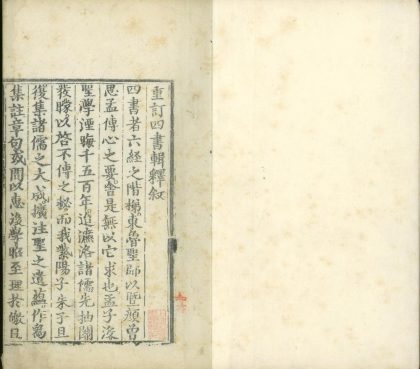 重訂四書輯釋叙
四書者六経之階梯東魯聖師以曁顔曾
思孟傳心之要會是無以它求也孟子没
聖學湮晦千五百年迨濂洛諸儒先抽關
發矇以啓不傳之秘而我紫陽子朱子且
復集諸儒之大成擴往聖之遺蘊作爲
集註章句或問以惠後學昭至理於皦日